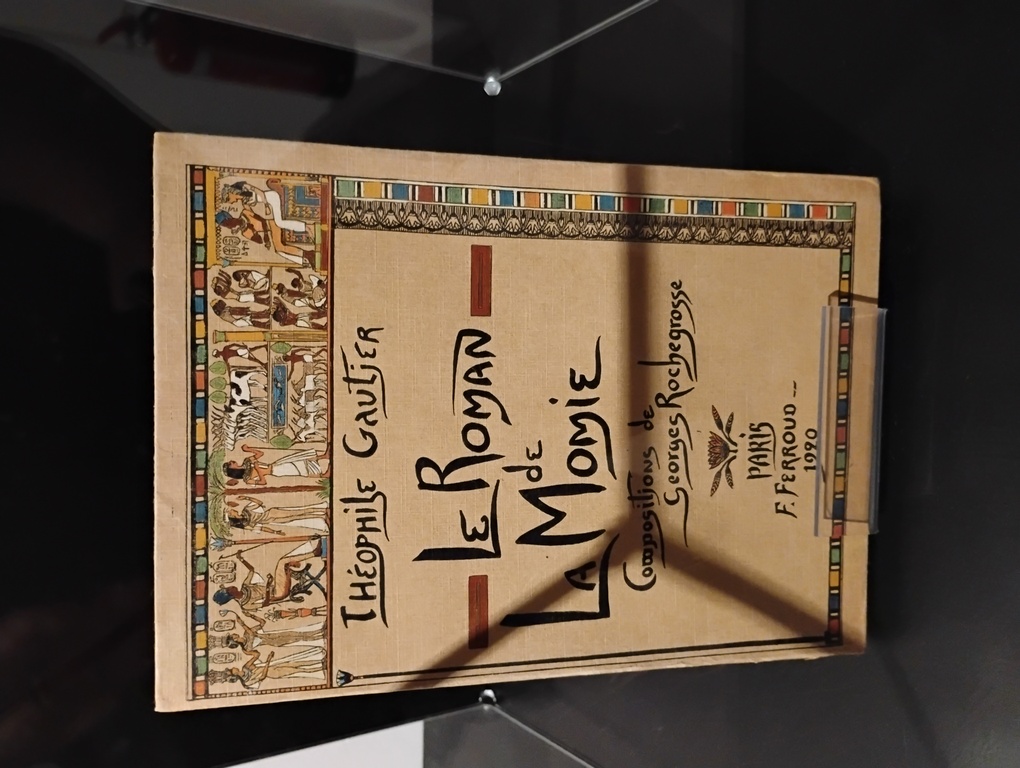 THÉOPHILE GAUTIER
LE ROMAN
DE
LA MOMIE
Compositions de
Georges Rochegrosse
PARIS
F. FERROUD
1920